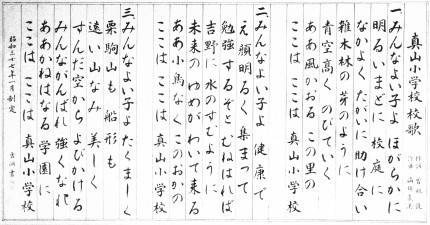 真山小学校校歌
作詞
作曲
一、みんなよい子よ ほがらかに
明るいまどに 校庭に
なかよく たがいに助け合い
雑木林の芽のように
青空高く のびていく
ああ風かおる この里の
ここは ここは 真山小学校
二、みんなよい子よ 健康で
え顔明るく 集まって
勉強するぞと むねはれば
吉野に水のすむように
未来のゆめがわいて来る
ああ小鳥なく このおかの
ここは ここは 真山小学校
三、みんなよい子よ たくましく
栗駒山も 船形も
遠い山なみ 美しく
すんだ空から よびかける
みんながんばれ 強くなれ
ああかねはなる 学園に
ここは ここは 真山小学校
昭和三十七年一月制定